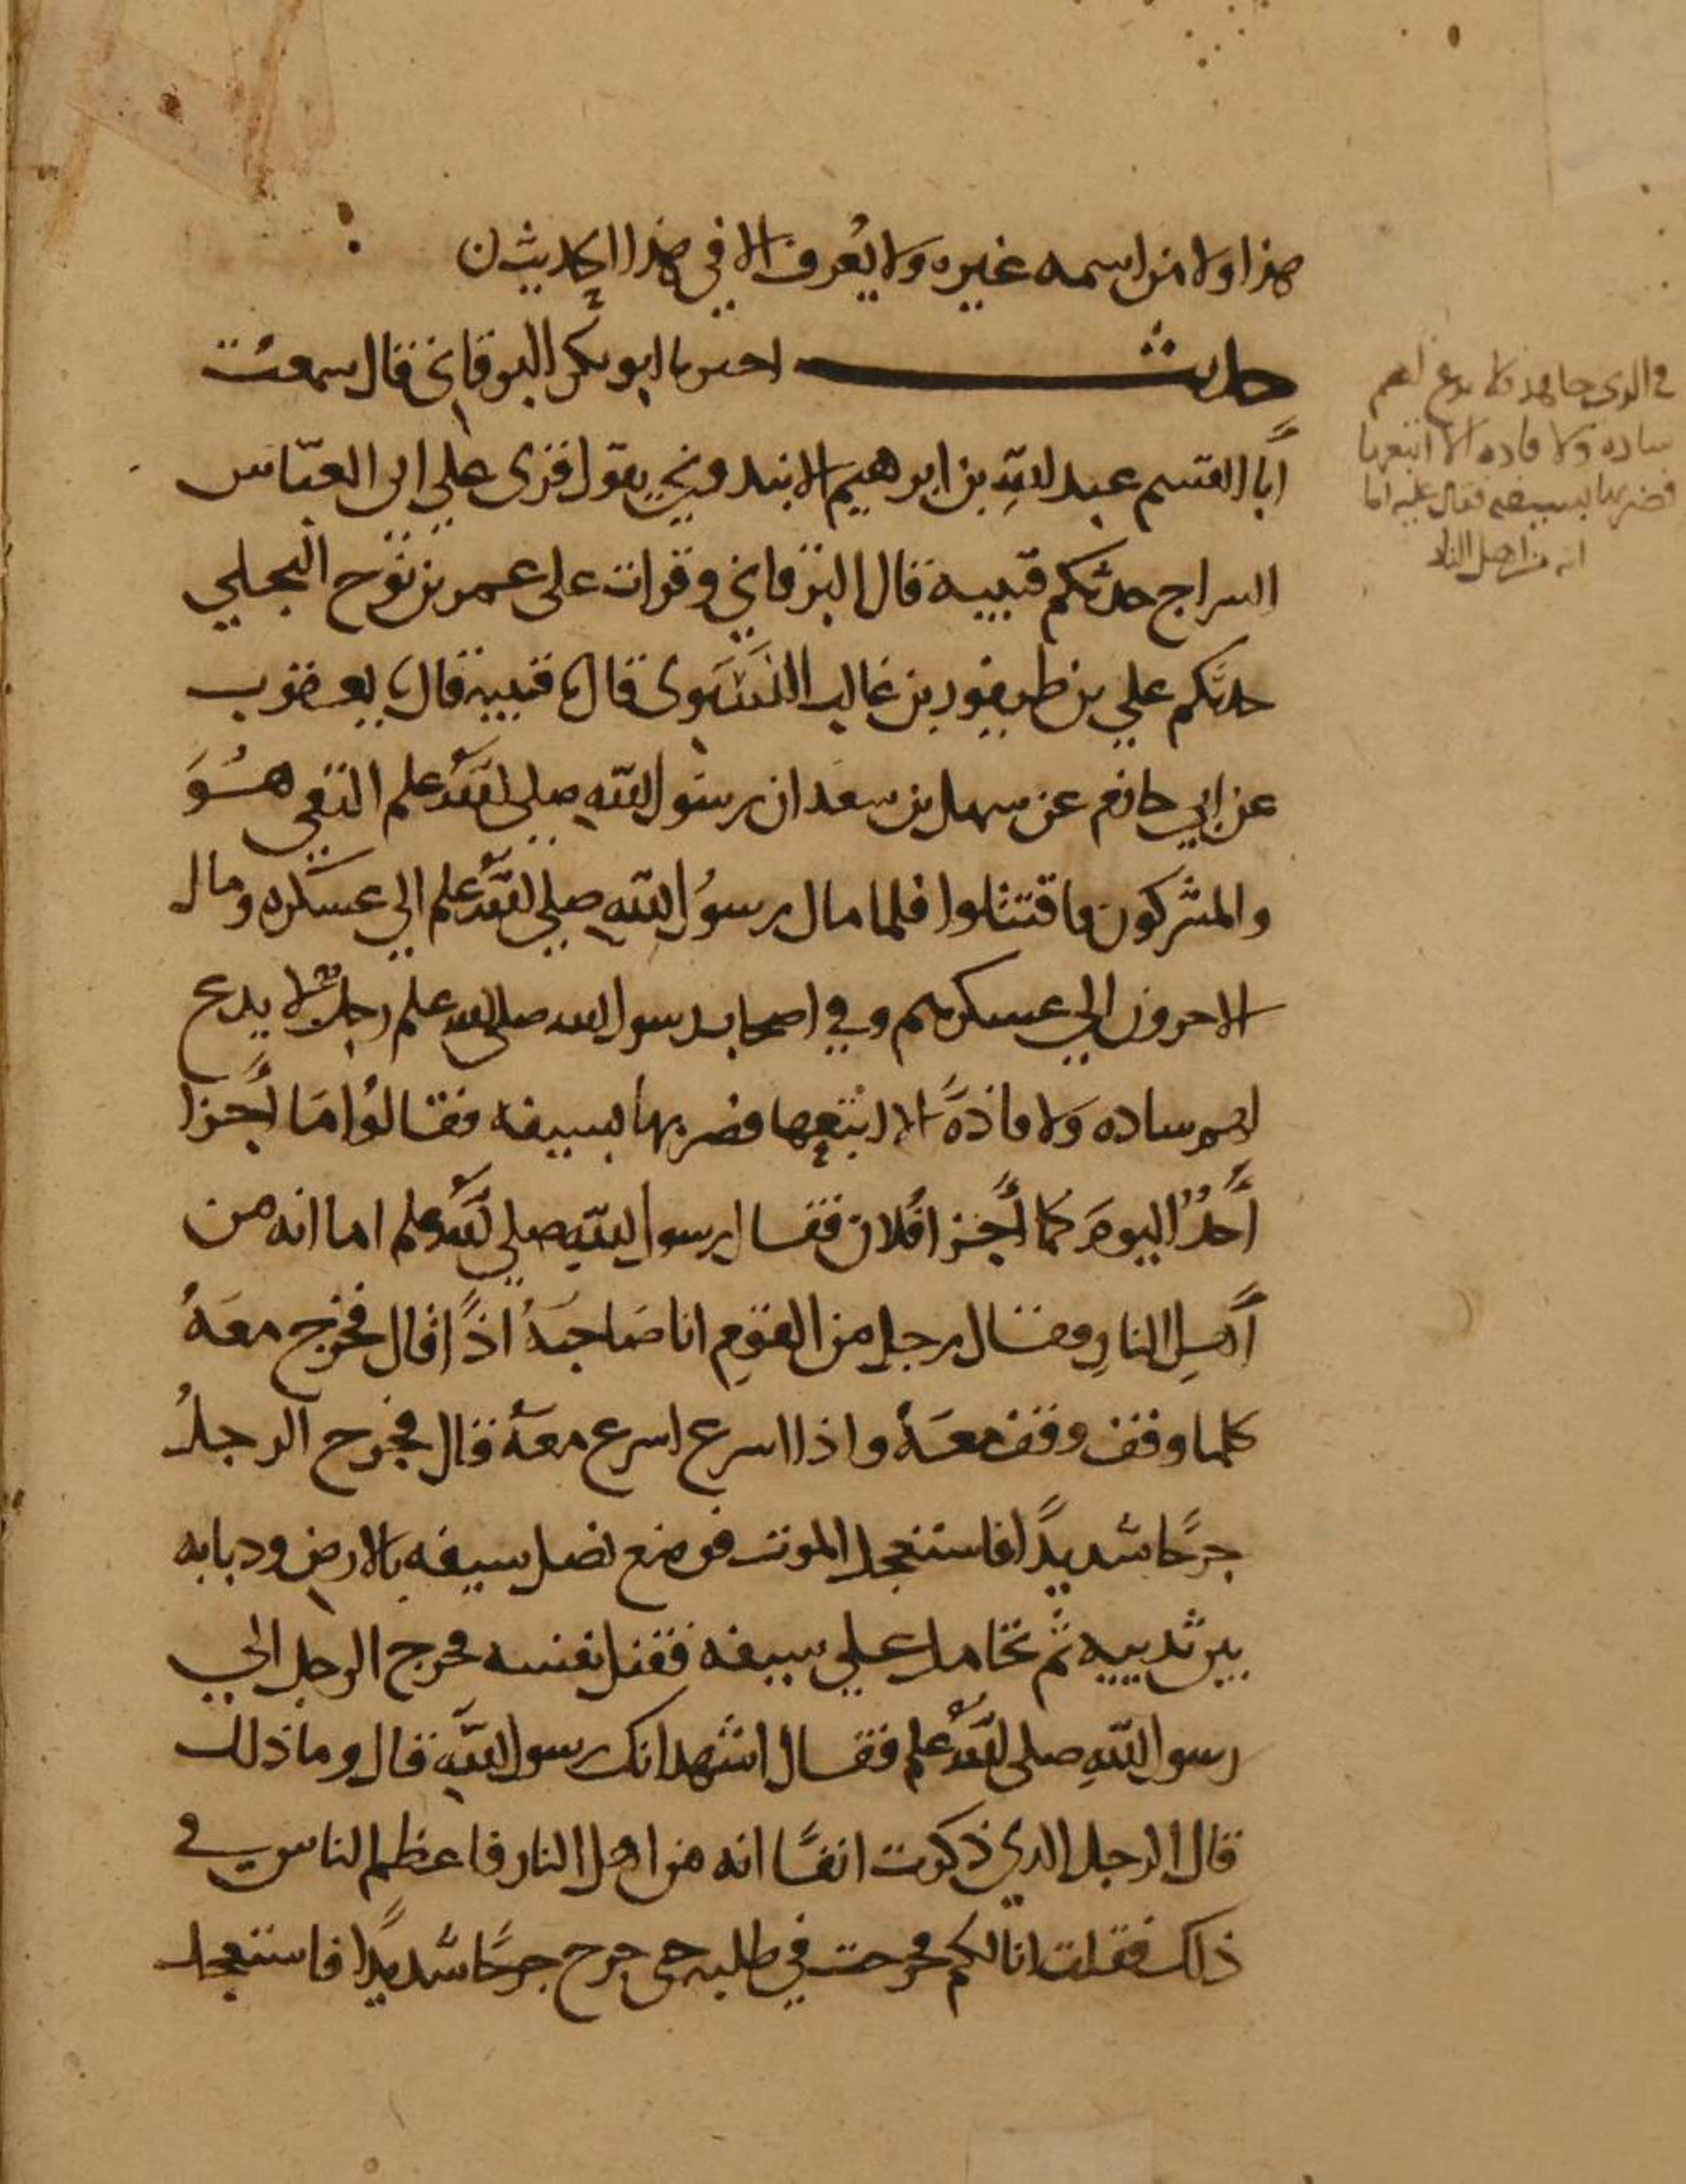 هذا ولا من اسمه غيره ولا يُعرف الا في هذا الحديث ن
حديث اخبرنا ابو بكر البرقاني قال سمعت
أبا القسم عبد اللهِ بن ابرهيم الابندوني يقول قرى علي ابى العبّاس
السراج حدثكم قتيبة قال البرقاني وقرات على عمر بن نوح البجلي
حدثكم علي بن طيفور بن غالب النَسَوى قال ثنا قتيبة قال ثنا يعقوب
عن ابي حازم عن سهل بن سعد ان رسول اللهِ صلى الله علم التقى هُوَ
والمشركون فاقتتلوا فلما مال رسوُل اللهِ صلي الله علم الي عسكره ومال
الاخرون الي عسكرهم وفي اصحاب رسول الله صلى الله علم رجلٌ لا يدع
لهم شاده وَلا فاذةً الا اتبعها فضربها بسيفه فقالوُا مَا أجزا
أحدٌ اليومَ كما أجزا فُلان فقال رسول اللهِ صلي الله علم اما انه من
أهلِ النارِ فقال رجل من القوم انا صَاحبهُ اذاً قال فخرج معَهُ
كلما وقف وقف معَهُ واذا اسرع اسرع معَهُ قال فجرح الرجلُ
جرحًا شديدًا فاستعجل الموت فوضع نصل سيفه بالارض ودبابه
بين ثدييه ثم تحامل علي سيفه فقتل نفسه فخرج الرجل الي
رسول اللهِ صلى الله علم فقال اشهد انك رسول الله قال وما ذلك
قال الرجل الدي ذكرت انفًا انه من اهل النار فاعظم الناس في
ذلك فقلت انا لكم فخرجت في طلبه حتى جرح جرحًا شديدًا فاستعجل
في الدي جاهد فلا يدع لهم
شاده ولا فاده الا اتبعها
فضربها بسيفه فقال عليه اما
انه من اهل النار